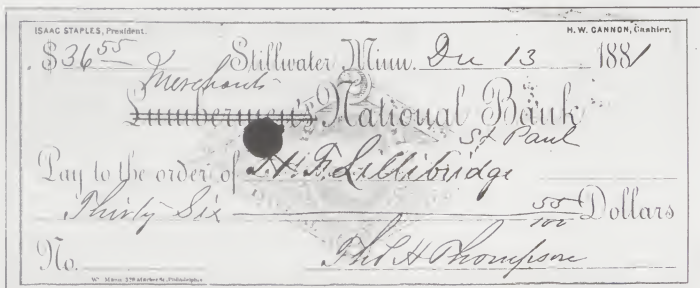 ISAAC STAPLES, President. H. W. CANNON, Cashier.
$36 55 Stillwater Minn. Dec 13 1881
Merchants
Lumbermen's National Bank
St Paul
Pay to the order of F. Lillibridge
Thirty Six 55/100 Dollars
No. Phil H Thompson